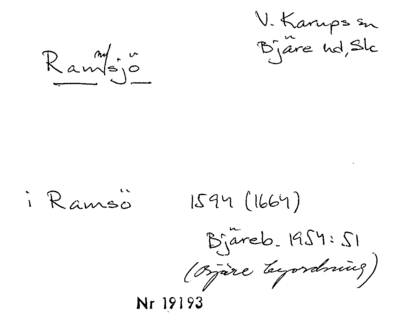 V. Karups sn
Bjäre hd, Skå
Ramsjö
i Ramsö 1594 (1664)
Bjäreb. 1954: 51
(Bjäre tegordning)
Nr 19193